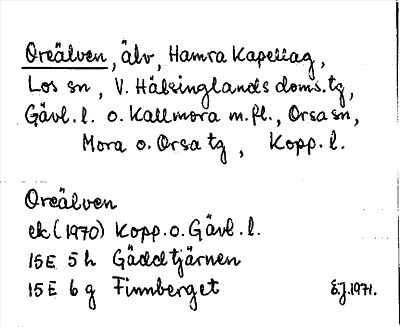 Oreälven, älv, Hamra Kapellag,
Los sn, V. Hälsinglands doms.tg,
Gävl.l. o. Kallmora m.fl., Orsa sn,
Mora o. Orsa tg, Kopp.l.
Oreälven
ek (1970) Kopp.o.Gävl.l.
15E 5h Gäddtjärnen
15E 6g Finnberget
E.J.1971.